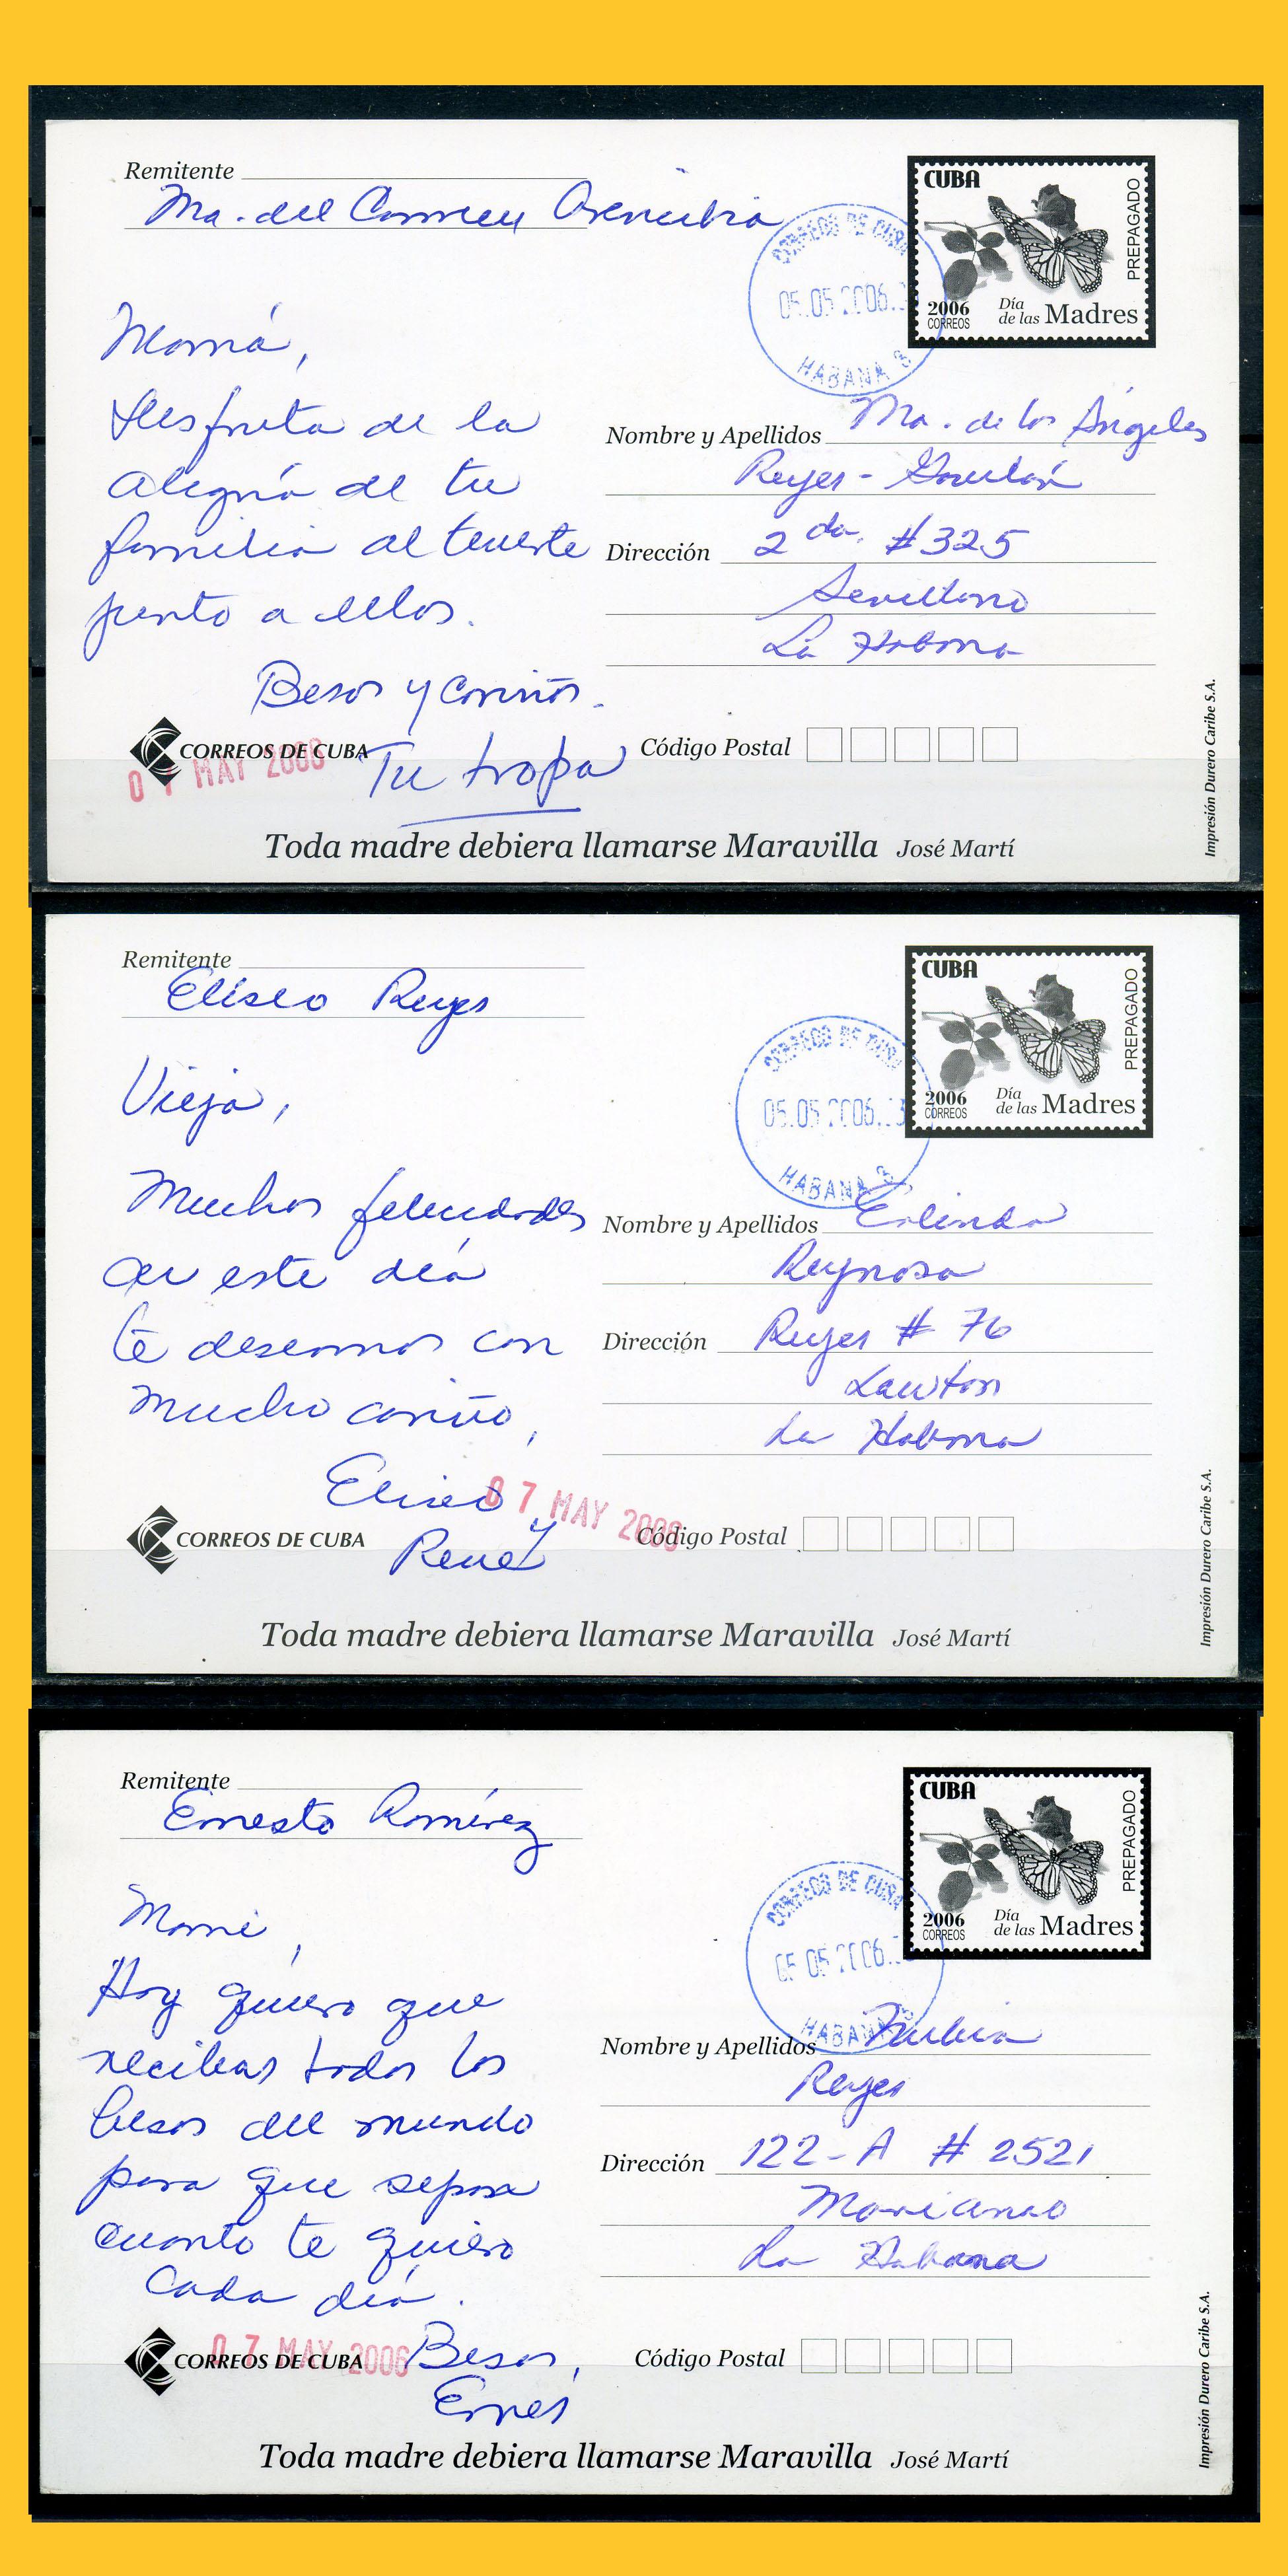 Remitente
Ma. del Carmen
CUBA
PREPAGADO
2006
CORREOS
Día
de las Madres
CORREOS DE CUBA
05.05.2006
HABANA 3
Mamá,
Disfruta de la
alegría de tu
familia al tenerte
junto a ellos.
Besos y cariños.
Tu tropa
Nombre y Apellidos Ma. de los Ángeles
Reyes-
Dirección 2da. #325
Sevillano
La Habana
CORREOS DE CUBA
07 MAY 2006
Código Postal
Toda madre debiera llamarse Maravilla José Martí
Impresión Durero Caribe S.A.
Remitente
Eliseo Reyes
CUBA
PREPAGADO
2006
CORREOS
Día
de las Madres
CORREOS DE CUBA
05.05.2006
HABANA 3
Vieja,
Muchas felicidades
en este día
te deseamos con
mucho cariño,
Eliseo y
René
Nombre y Apellidos Erlinda
Reynosa
Dirección Reyes # 76
Lawton
La Habana
07 MAY 2006
CORREOS DE CUBA
Código Postal
Toda madre debiera llamarse Maravilla José Martí
Impresión Durero Caribe S.A.
Remitente
Ernesto Ramírez
CUBA
PREPAGADO
2006
CORREOS
Día
de las Madres
CORREOS DE CUBA
05.05.2006
HABANA
Mami,
Hoy quiero que
recibas todos los
besos del mundo
para que sepas
cuanto te quiero
cada día.
Besos,
Ernes
Nombre y Apellidos Nubia
Reyes
Dirección 122-A # 2521
Marianao
La Habana
CORREOS DE CUBA
07 MAY 2006
Código Postal
Toda madre debiera llamarse Maravilla José Martí
Impresión Durero Caribe S.A.